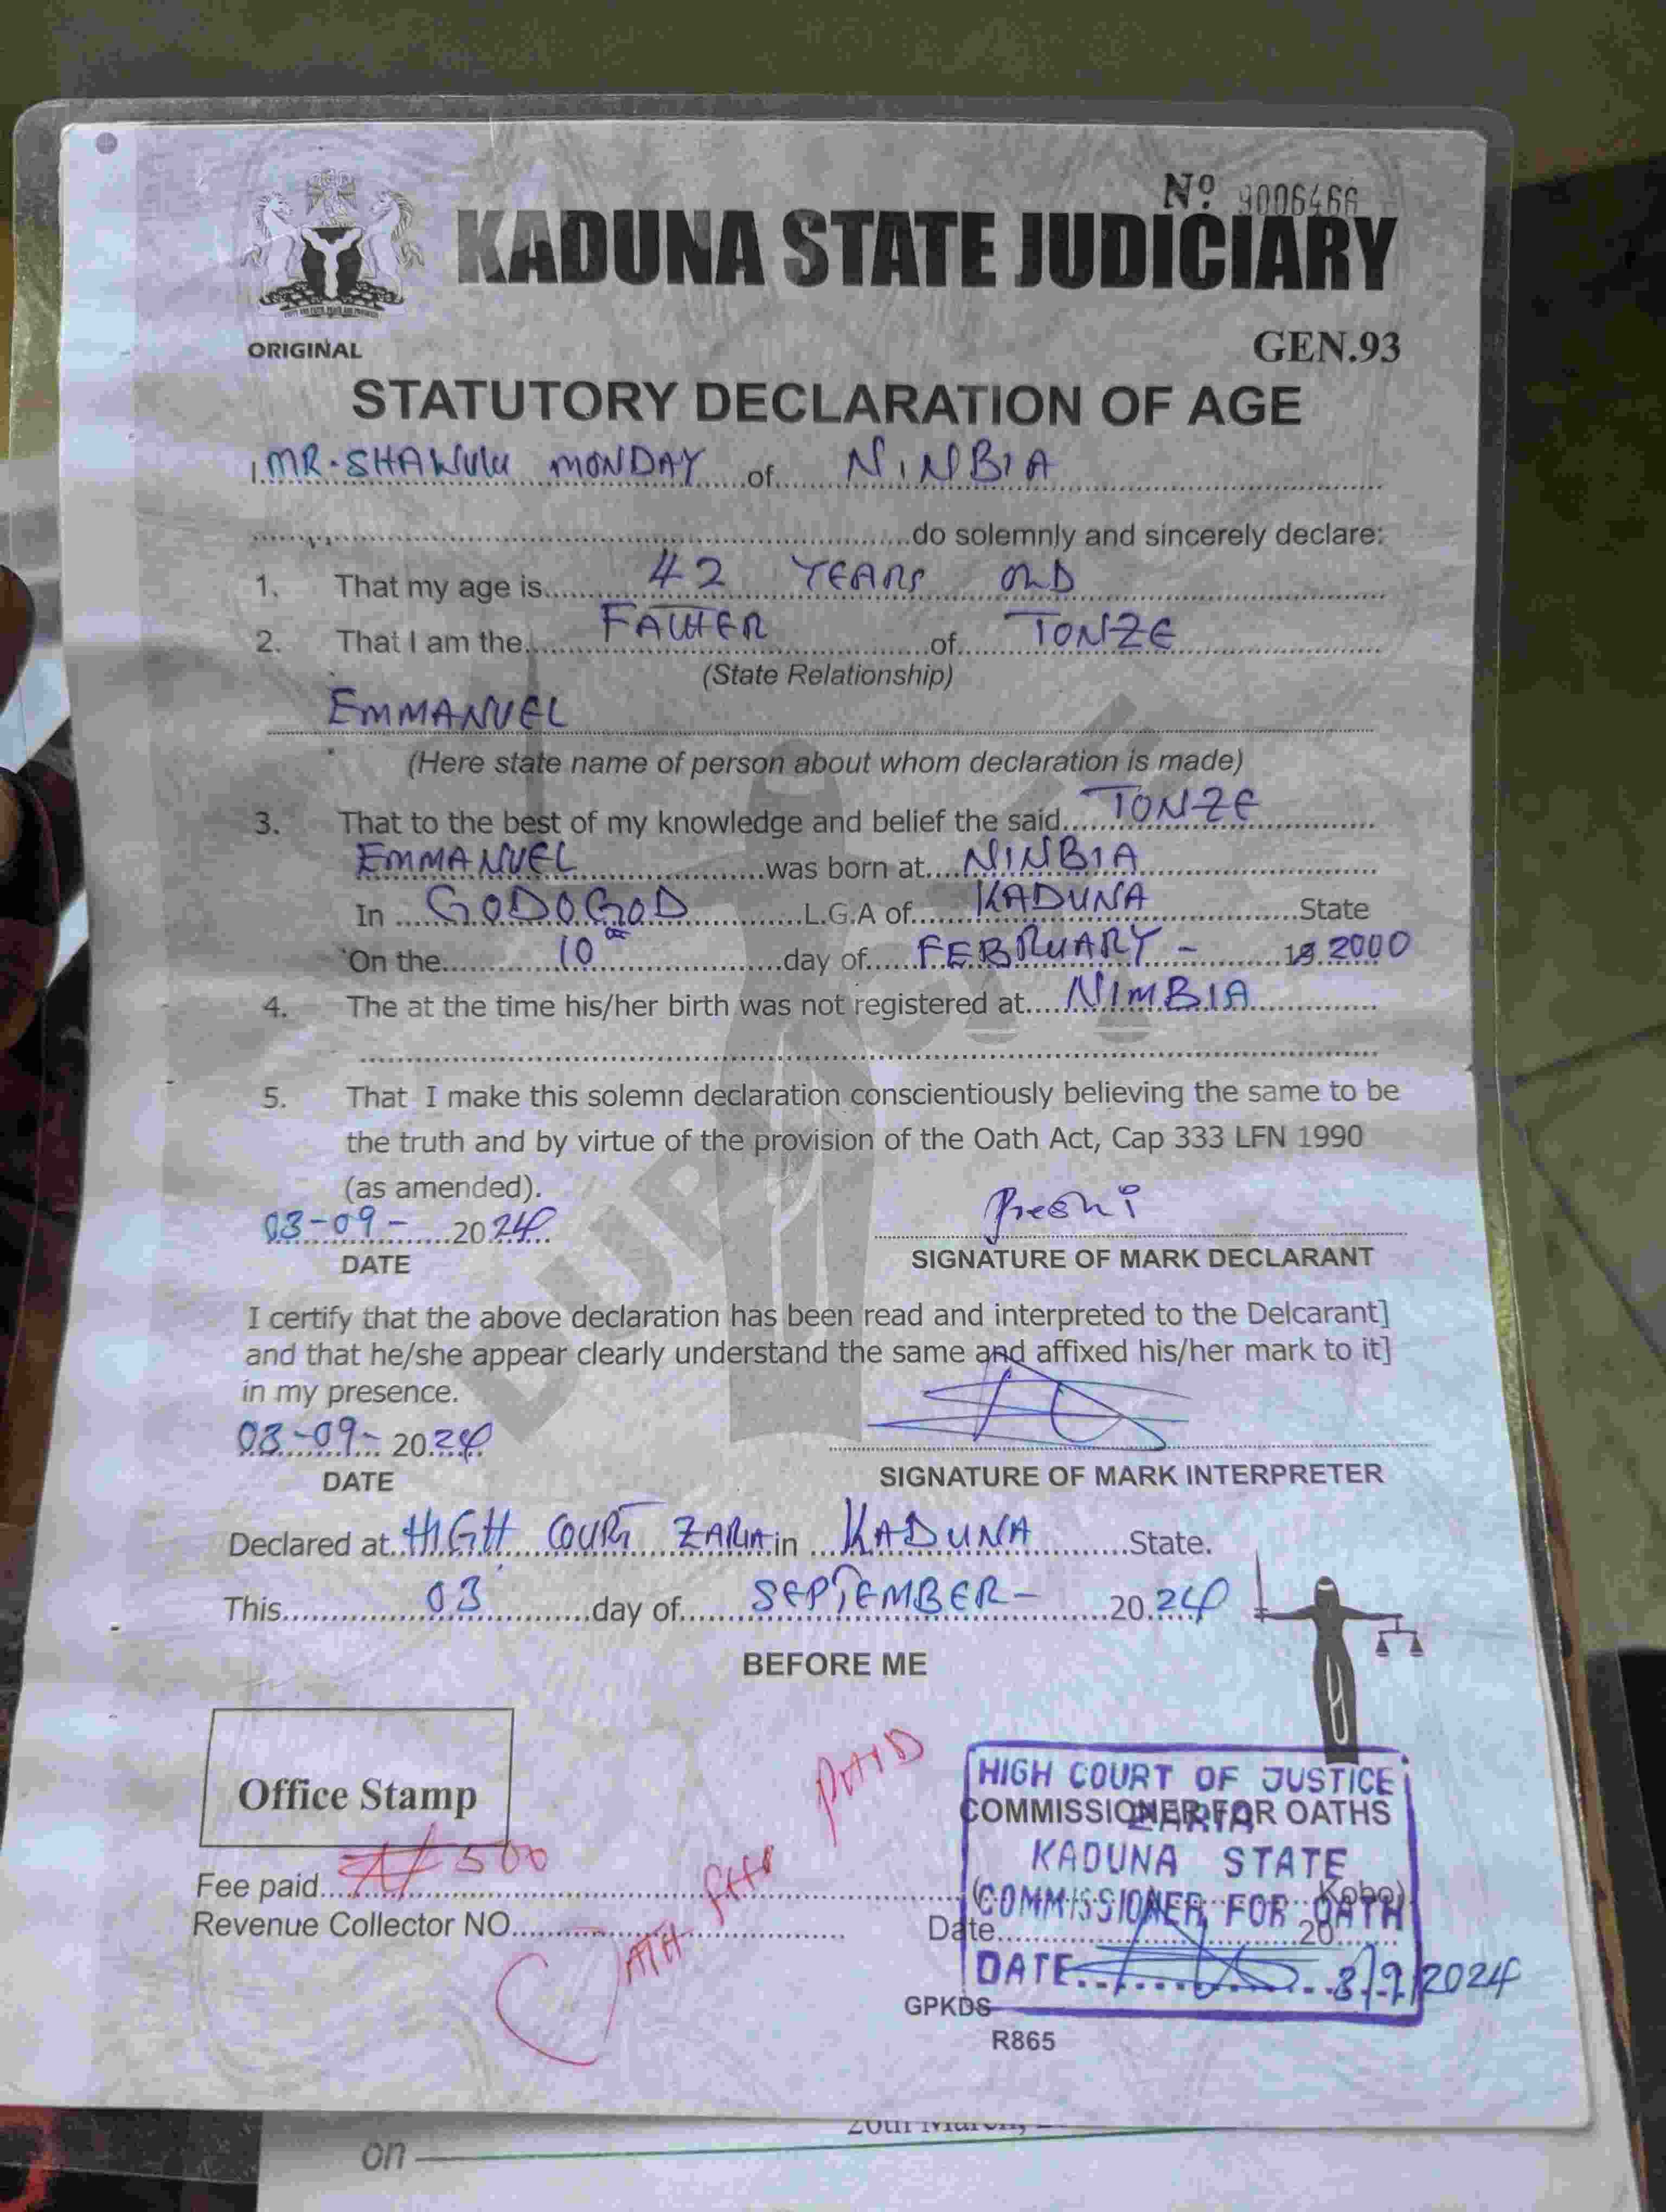 Nº 9006466
KADUNA STATE JUDICIARY
ORIGINAL
GEN.93
STATUTORY DECLARATION OF AGE
I, MR. SHAWULU MONDAY of NINBIA
do solemnly and sincerely declare:
1. That my age is 42 YEARS OLD
2. That I am the FATHER of TONZE
(State Relationship)
EMMANUEL
(Here state name of person about whom declaration is made)
3. That to the best of my knowledge and belief the said TONZE
EMMANUEL was born at NINBIA
In GODOGOD L.G.A of KADUNA State
On the 10th day of FEBRUARY - 19 2000
4. The at the time his/her birth was not registered at NIMBIA
5. That I make this solemn declaration conscientiously believing the same to be
the truth and by virtue of the provision of the Oath Act, Cap 333 LFN 1990
(as amended).
03-09- 2024
DATE
SIGNATURE OF MARK DECLARANT
I certify that the above declaration has been read and interpreted to the Delcarant]
and that he/she appear clearly understand the same and affixed his/her mark to it]
in my presence.
03-09- 2024
DATE
SIGNATURE OF MARK INTERPRETER
Declared at HIGH COURT ZARIA in KADUNA State.
This 03 day of SEPTEMBER - 2024
BEFORE ME
Office Stamp
HIGH COURT OF JUSTICE
COMMISSIONER FOR OATHS
ZARIA
KADUNA STATE
Fee paid ₦500 Kobo)
COMMISSIONER FOR OATH
OATH FEE PAID
Revenue Collector NO Date 20
DATE 3/9/2024
GPKDS
R865
DUPLICATE
20th March,
on